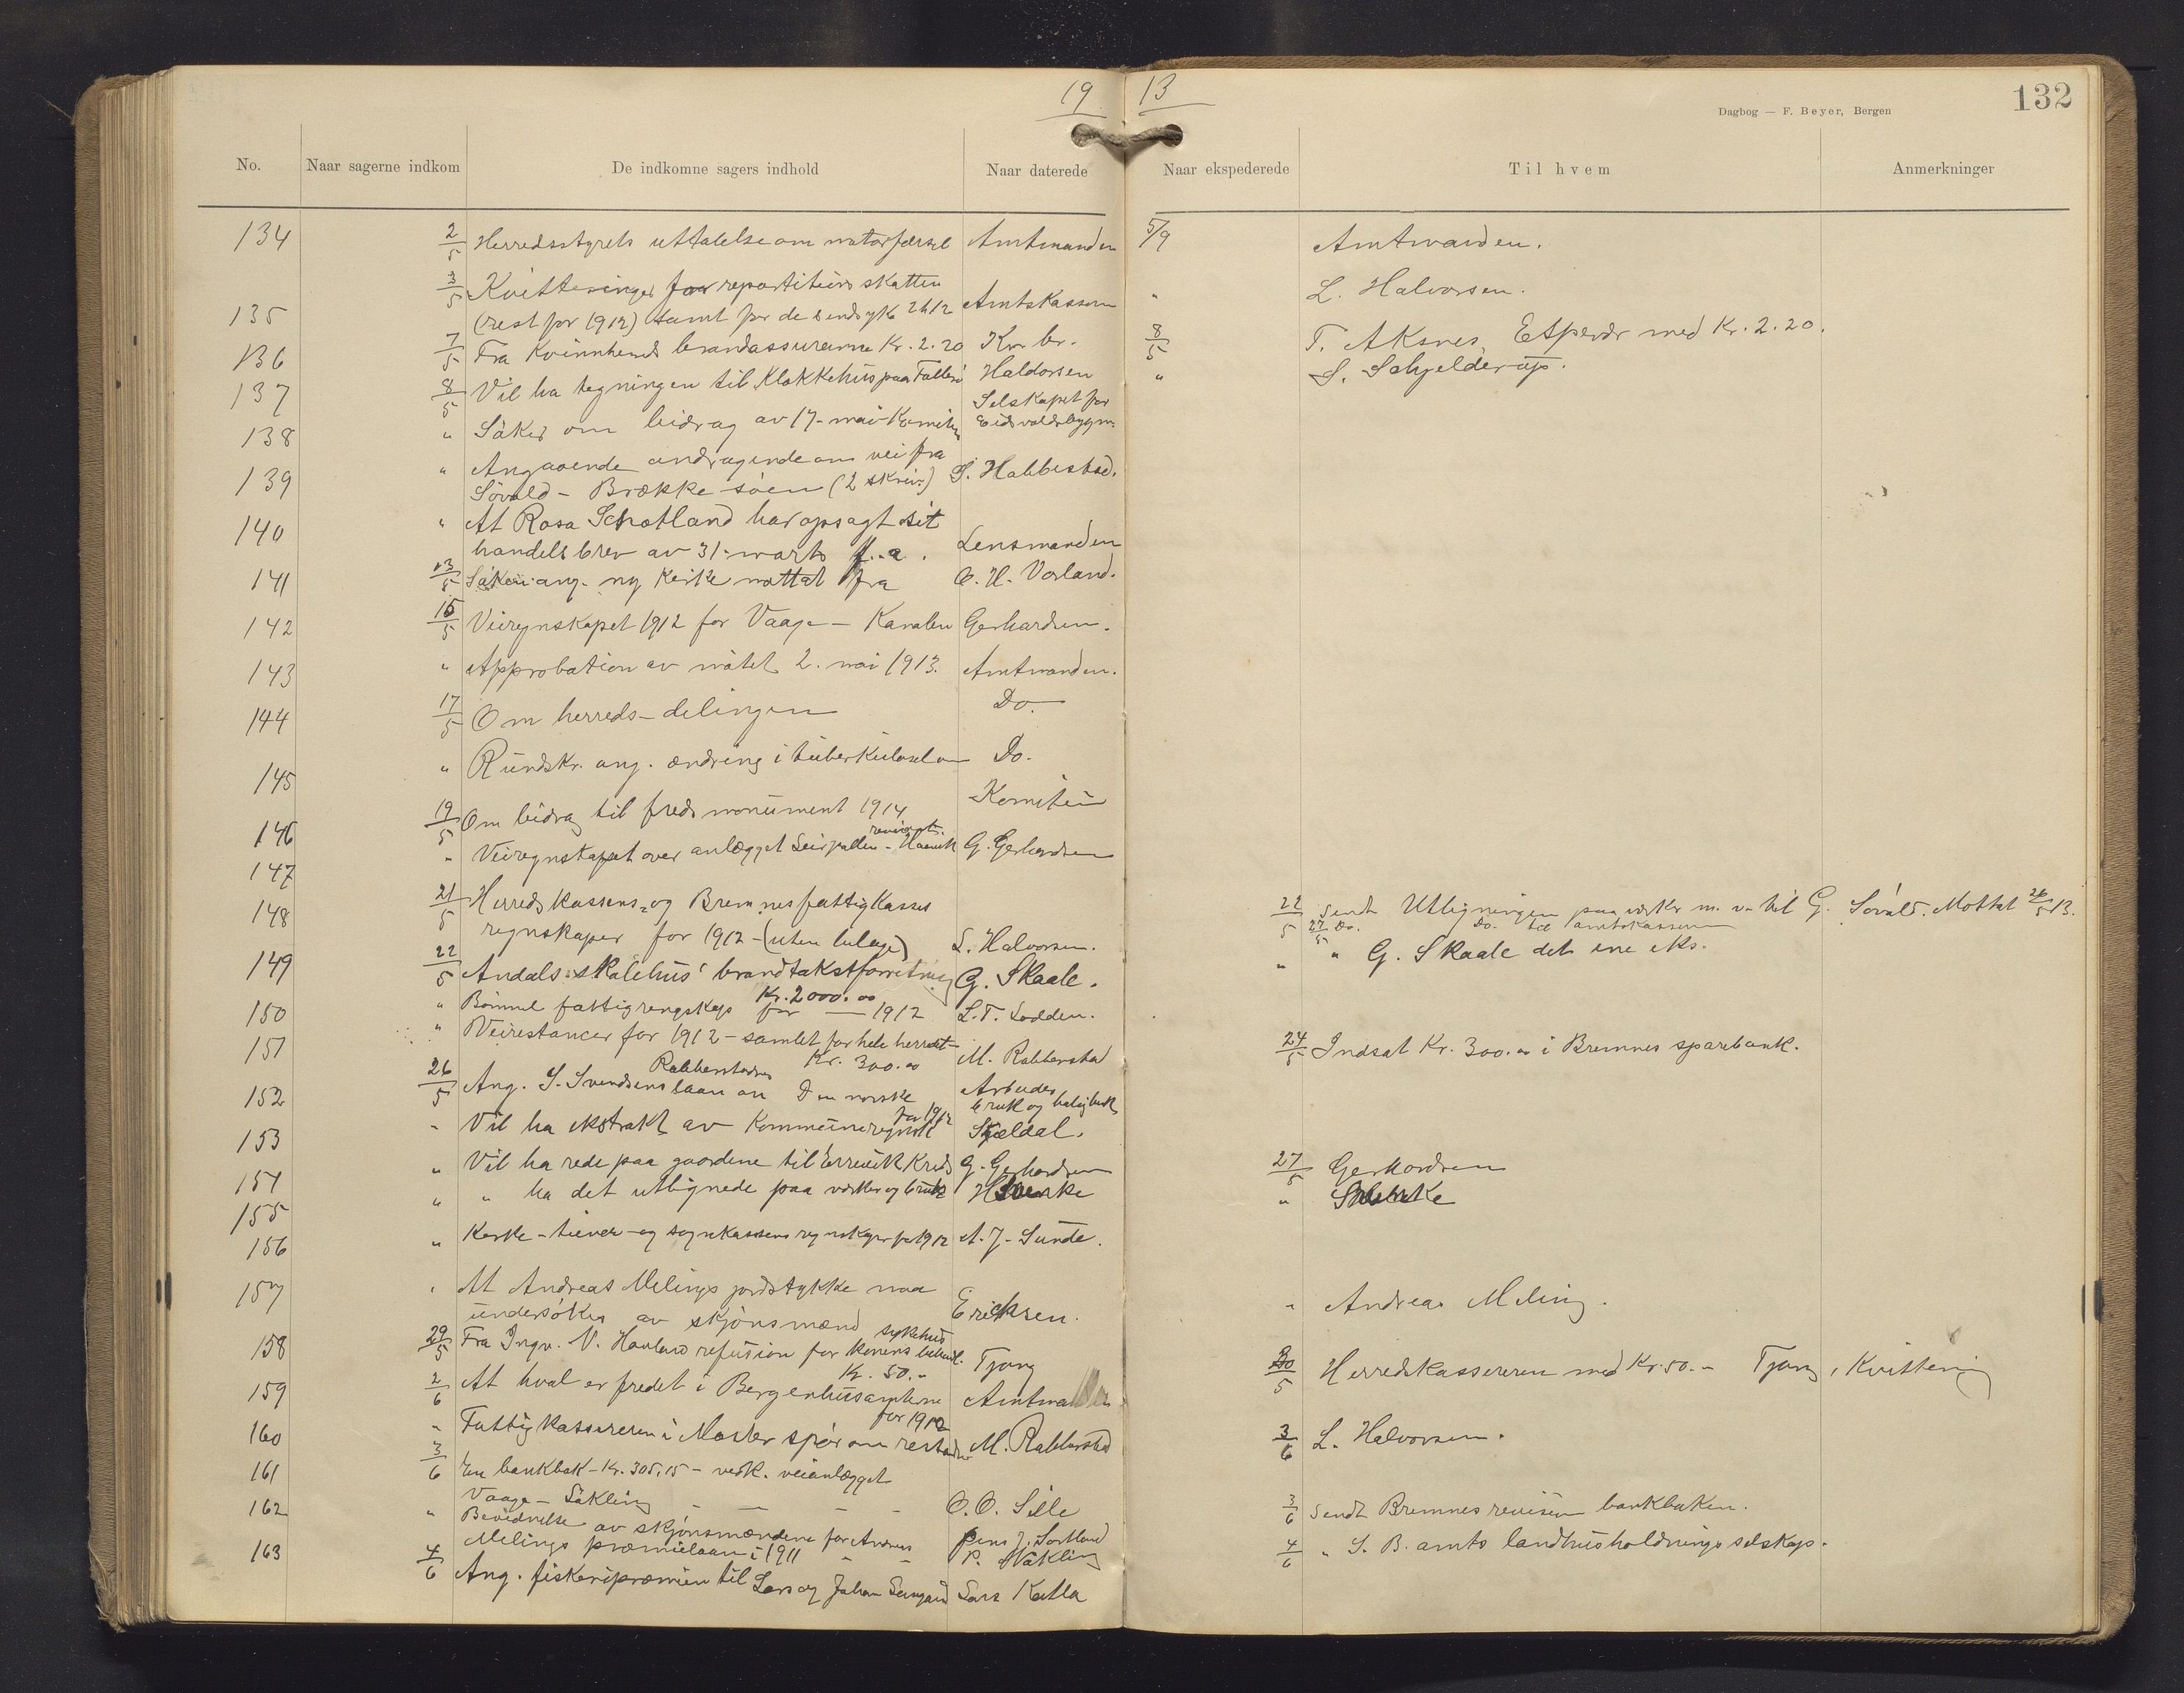 19 13
132
Dagbog — F. Beyer, Bergen
No. Naar sagerne indkom De indkomne sagers indhold Naar daterede Naar ekspederede Til hvem Anmerkninger
134 2/5 Herredsstyrets uttalelse om motorfærsel Amtmanden 5/9 Amtmanden.
3/5 Kvitteringer for repartitions skatten
135 (rest for 1912) samt for de sindsyke 2h12 Amtskassern " L. Halvorsen.
136 7/5 Fra Kvinnherads brandassuranse Kr. 2.20 Kv. br. 8/5 T. Aksnes, Etspendr med Kr. 2.20.
137 8/5 Vil ha tegningen til Klokkehus paa Haldorsen " S. Schjelderup.
Selskapet for
138 " Søker om bidrag av 17-mai-Komiteen Eidsvoldsbygn.
" Angaaende andragende om vei fra
139 Søvold - Brække-søen (2 skriv.) S. Habbestad.
" At Rosa Schotland har opsagt sit
140 handelsbrev av 31. marts f. a. Lensmanden
141 13/5 Saken ang. ny kirke mottat fra O. H. Vorland.
142 15/5 Veiregnskapet 1912 for Vaage - Kanalen Gerhardsen.
143 " Approbation av møtet 2. mai 1913. Amtmanden.
144 17/5 Om herreds-delingen Do.
145 " Rundskr. ang. ændring i tuberkuloselov Do.
146 19/5 Om bidrag til fredsmonument 1914 Komiteen
revisionst.
147 " Veiregnskapet over anlægget - Haavik G. Gerhardsen
148 21/5 Herredskassens- og Bremnes fattigkasses 22/5 Sendt Utligningen paa verker m. v. til G. Søvold. Mottat 26/5 13.
regnskaper for 1912 - (uten bilage) L. Halvorsen. 27/5 Do. Do. til amtskassern
149 22/5 Andals skolehus' brandtakstforretning G. Skaale. " " G. Skaale det ene eks.
Kr. 2000.00
150 " Bømmel fattigregnskap for — 1912 L. T. Lodden.
151 " Veirestancer for 1912 - samlet for hele herredet M. Rabbersstad 24/5 Indsat Kr. 300.00 i Bremnes sparebank.
Rabberstadnes Kr. 300.00
152 26/5 Ang. S. Svendsens laan av Den norske Arbeider bruk og boligbank
for 1912
153 " Vil ha ekstrakt av Kommuneregnsk Skjeldal.
154 " Vil ha rede paa gaardene til Kreds G. Gerhardsen 27/5 Gerhardsen
155 " " ha det utlignede paa verker og bruk "
156 " Kirke-tiende- og sognekassens regnskaper for 1912 A. J. Sunde.
157 " At Andreas Melings jordstykke maa
undersøkes av skjønsmænd Eriksen. " Andreas Meling.
sykehus
158 29/5 Fra Ingv. V. Havland refusion for konens behandl. Tjong 30/5 Herredskassereren med Kr. 50.- Tjong, Kvittering
Kr. 50.-
159 2/6 At hval er fredet i Bergenhusamterne
for 1912
160 " Fattigkassereren i Moster spør om M. Rabberstad 3/6 L. Halvorsen.
161 3/6 En bankbok - Kr. 305,15 - vedk. veianlægget
Vaage - Søkling O. O. Sille 3/6 Sendt Bremnes revision bankboken.
162 " Bevidnelse av skjønsmændene for Andreas Jens J. Sortland
Melings præmielaan i 1911 P. Søkling 4/6 " S. B. amts landhusholdningsselskap.
163 4/6 Ang. fiskeripræmien til Lars og Johan Lars Katla